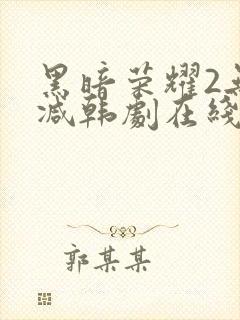 黑暗荣耀2
减韩劇在綫
郭某某